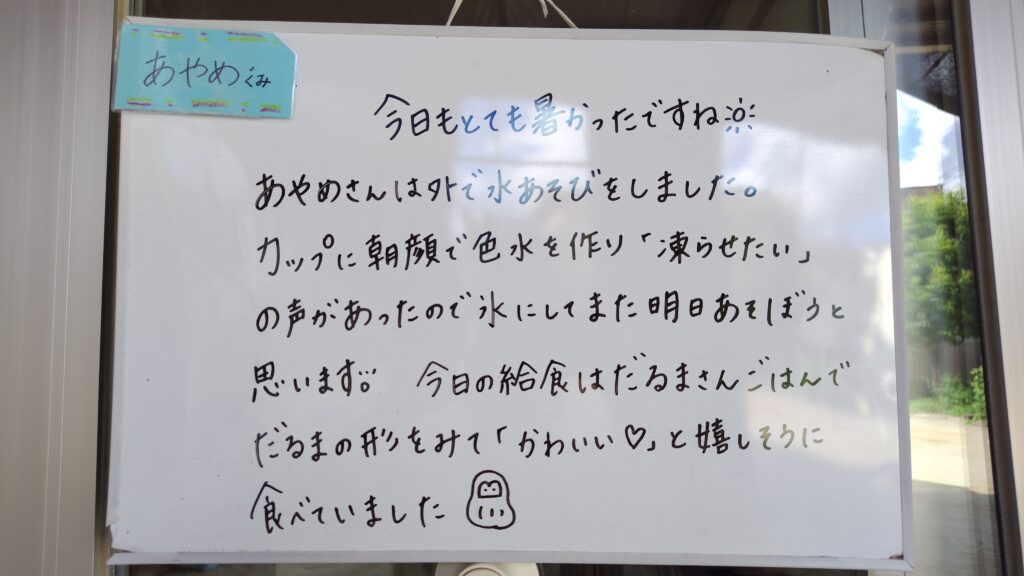 あやめぐみ
今日もとても暑かったですね
あやめさんは外で水あそびをしました。
カップに朝顔で色水を作り「凍らせたい」
の声があったので氷にしてまた明日あそぼうと
思います。 今日の給食はだるまさんごはんで
だるまの形をみて「かわいい♡」と嬉しそうに
食べていました